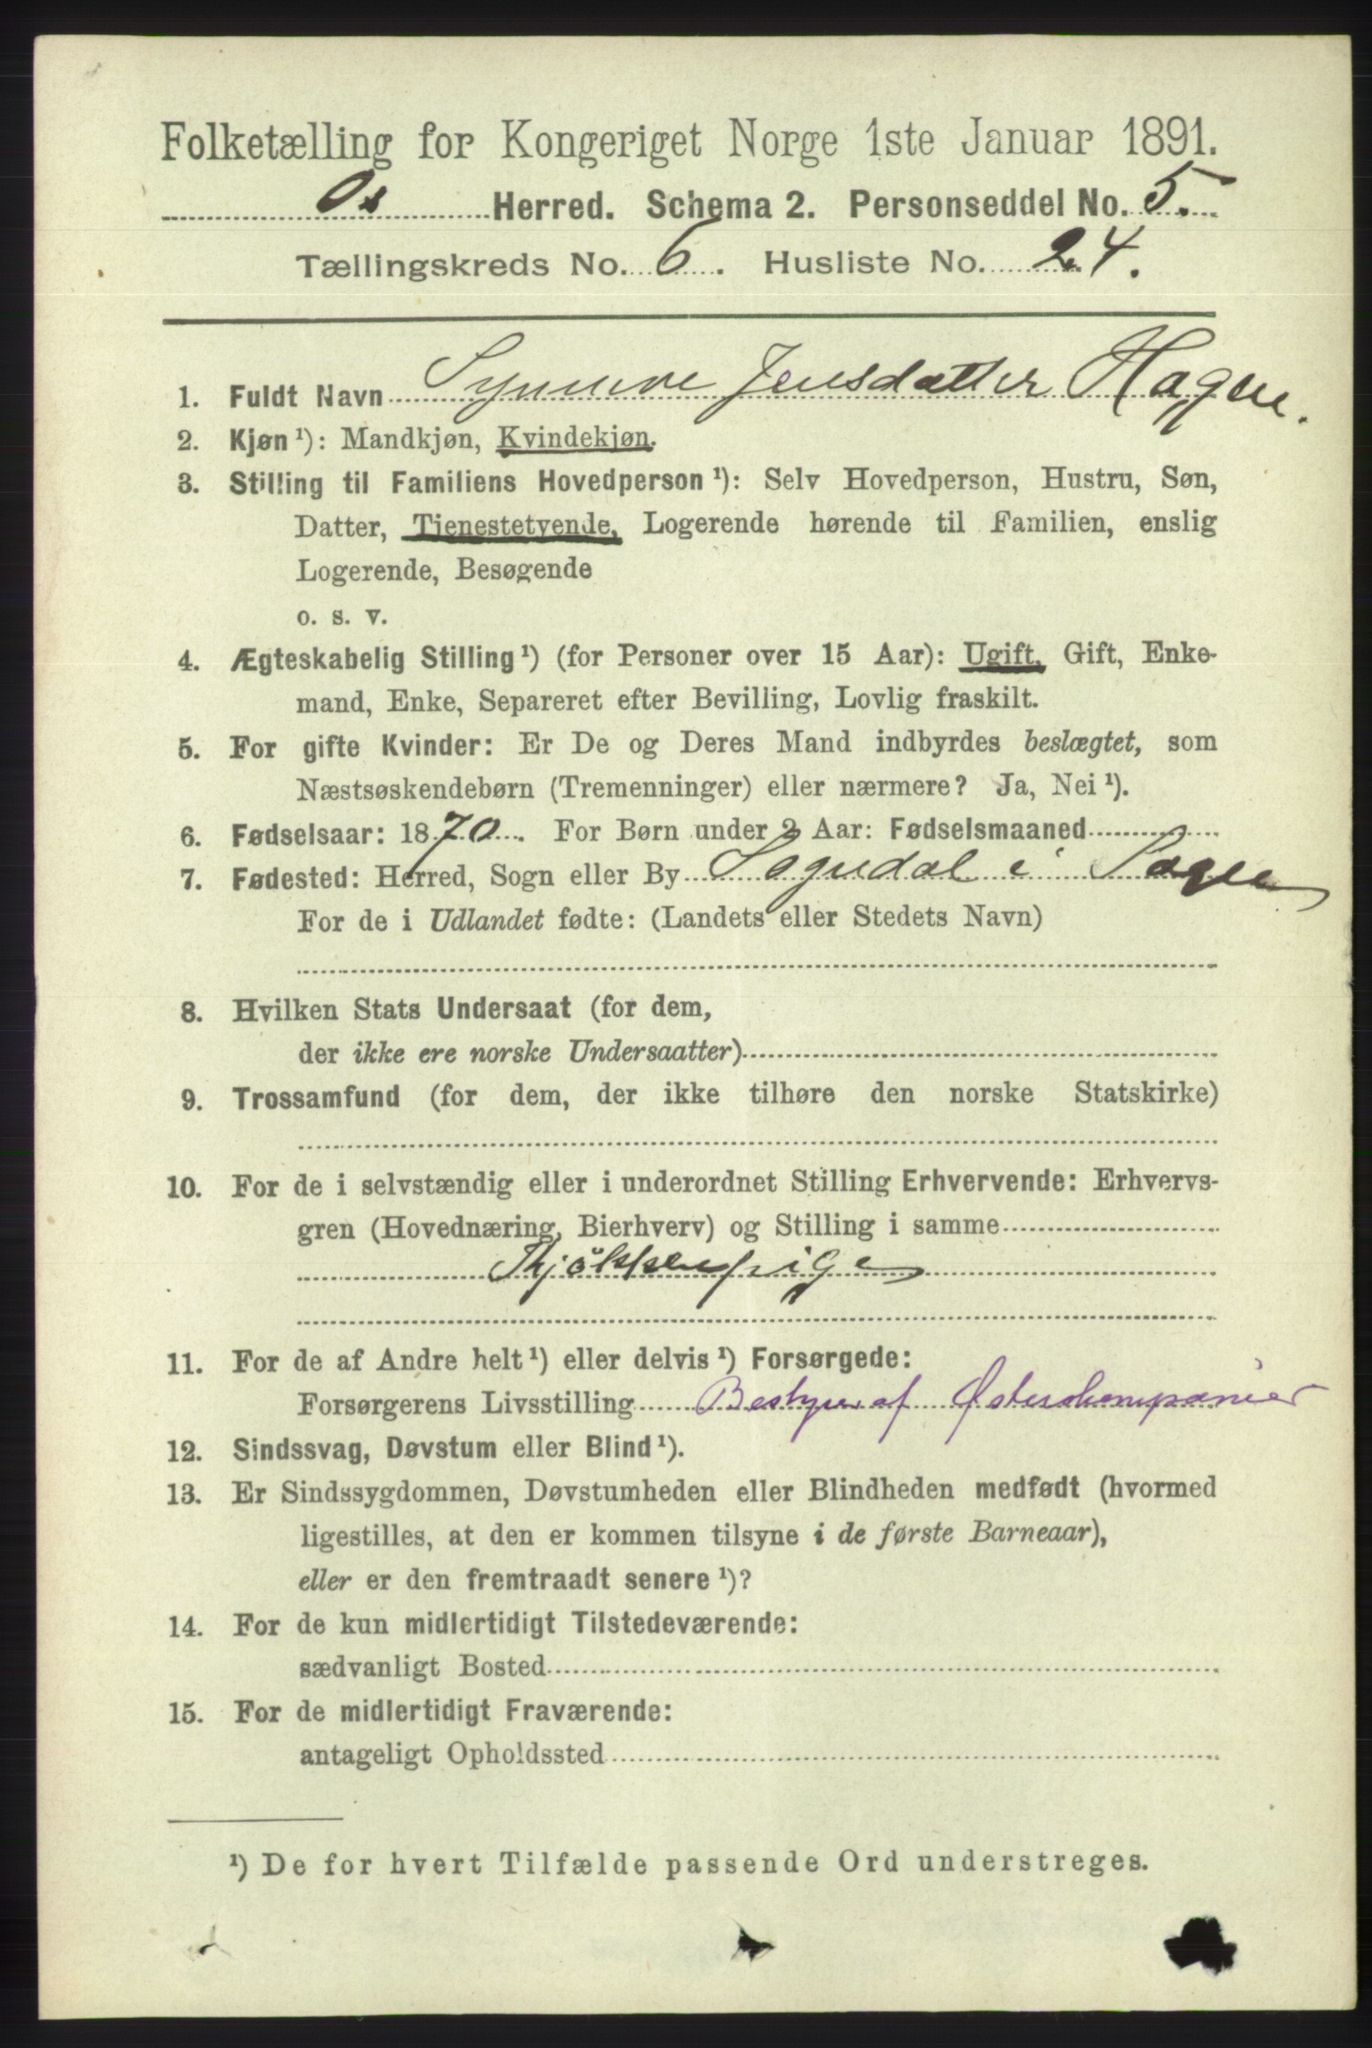 Folketælling for Kongeriget Norge 1ste Januar 1891.
Os Herred. Schema 2. Personseddel No. 5.
Tællingskreds No. 6. Husliste No. 24.
1. Fuldt Navn Synneve Jensdatter
2. Kjøn ¹): Mandkjøn, Kvindekjøn.
3. Stilling til Familiens Hovedperson ¹): Selv Hovedperson, Hustru, Søn,
Datter, Tienestetyende, Logerende hørende til Familien, enslig
Logerende, Besøgende
o. s. v.
4. Ægteskabelig Stilling ¹) (for Personer over 15 Aar): Ugift, Gift, Enke-
mand, Enke, Separeret efter Bevilling, Lovlig fraskilt.
5. For gifte Kvinder: Er De og Deres Mand indbyrdes beslægtet, som
Næstsøskendebørn (Tremenninger) eller nærmere? Ja, Nei ¹).
6. Fødselsaar: 1870. For Børn under 2 Aar: Fødselsmaaned
7. Fødested: Herred, Sogn eller By Sogndal i Sogn
For de i Udlandet fødte: (Landets eller Stedets Navn)
8. Hvilken Stats Undersaat (for dem,
der ikke ere norske Undersaatter)
9. Trossamfund (for dem, der ikke tilhøre den norske Statskirke)
10. For de i selvstændig eller i underordnet Stilling Erhvervende: Erhvervs-
gren (Hovednæring, Bierhverv) og Stilling i samme
Kjökkenpige
11. For de af Andre helt ¹) eller delvis ¹) Forsørgede:
Forsørgerens Livsstilling Bestyrer af
12. Sindssvag, Døvstum eller Blind ¹).
13. Er Sindssygdommen, Døvstumheden eller Blindheden medfødt (hvormed
ligestilles, at den er kommen tilsyne i de første Barneaar),
eller er den fremtraadt senere ¹)?
14. For de kun midlertidigt Tilstedeværende:
sædvanligt Bosted
15. For de midlertidigt Fraværende:
antageligt Opholdssted
¹) De for hvert Tilfælde passende Ord understreges.